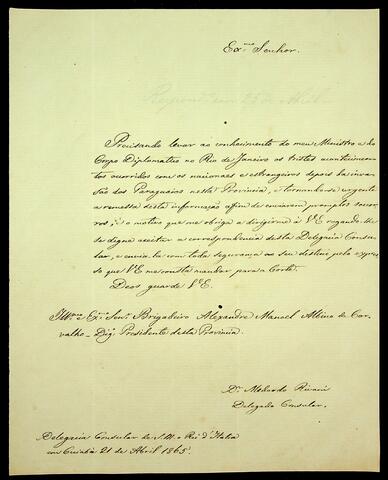 Ex.mo Senhor.
Precisando levar ao conhecimento do meu Ministro e do
Corpo Diplomatico no Rio de Janeiro os tristes acontecimen-
tos occorridos com os nacionaes e estrangeiros depois da inva-
são dos Paraguaios nesta Provincia, e tornando-se urgente
a remessa desta informação afim de enviarem promptos socor-
ros; é o motivo que me obriga a dirigir-me à V.E. rogando-lhe
se digne acceitar a correspondencia desta Delegacia Consu-
lar, e envia-la com toda segurança ao seu destino pelo expres-
so que V.E. me consta mandar para a Corte.
Deos guarde V.E.
Illmo. e Ex.mo Senr. Brigadeiro Alexandre Manoel Albino de Car-
valho - Dig. Presidente desta Provincia.
Dr. Medardo Rivani
Delegado Consular.
Delegacia Consular de S.M. o Rei d'Italia
em Cuiabá 21 de Abril 1865.